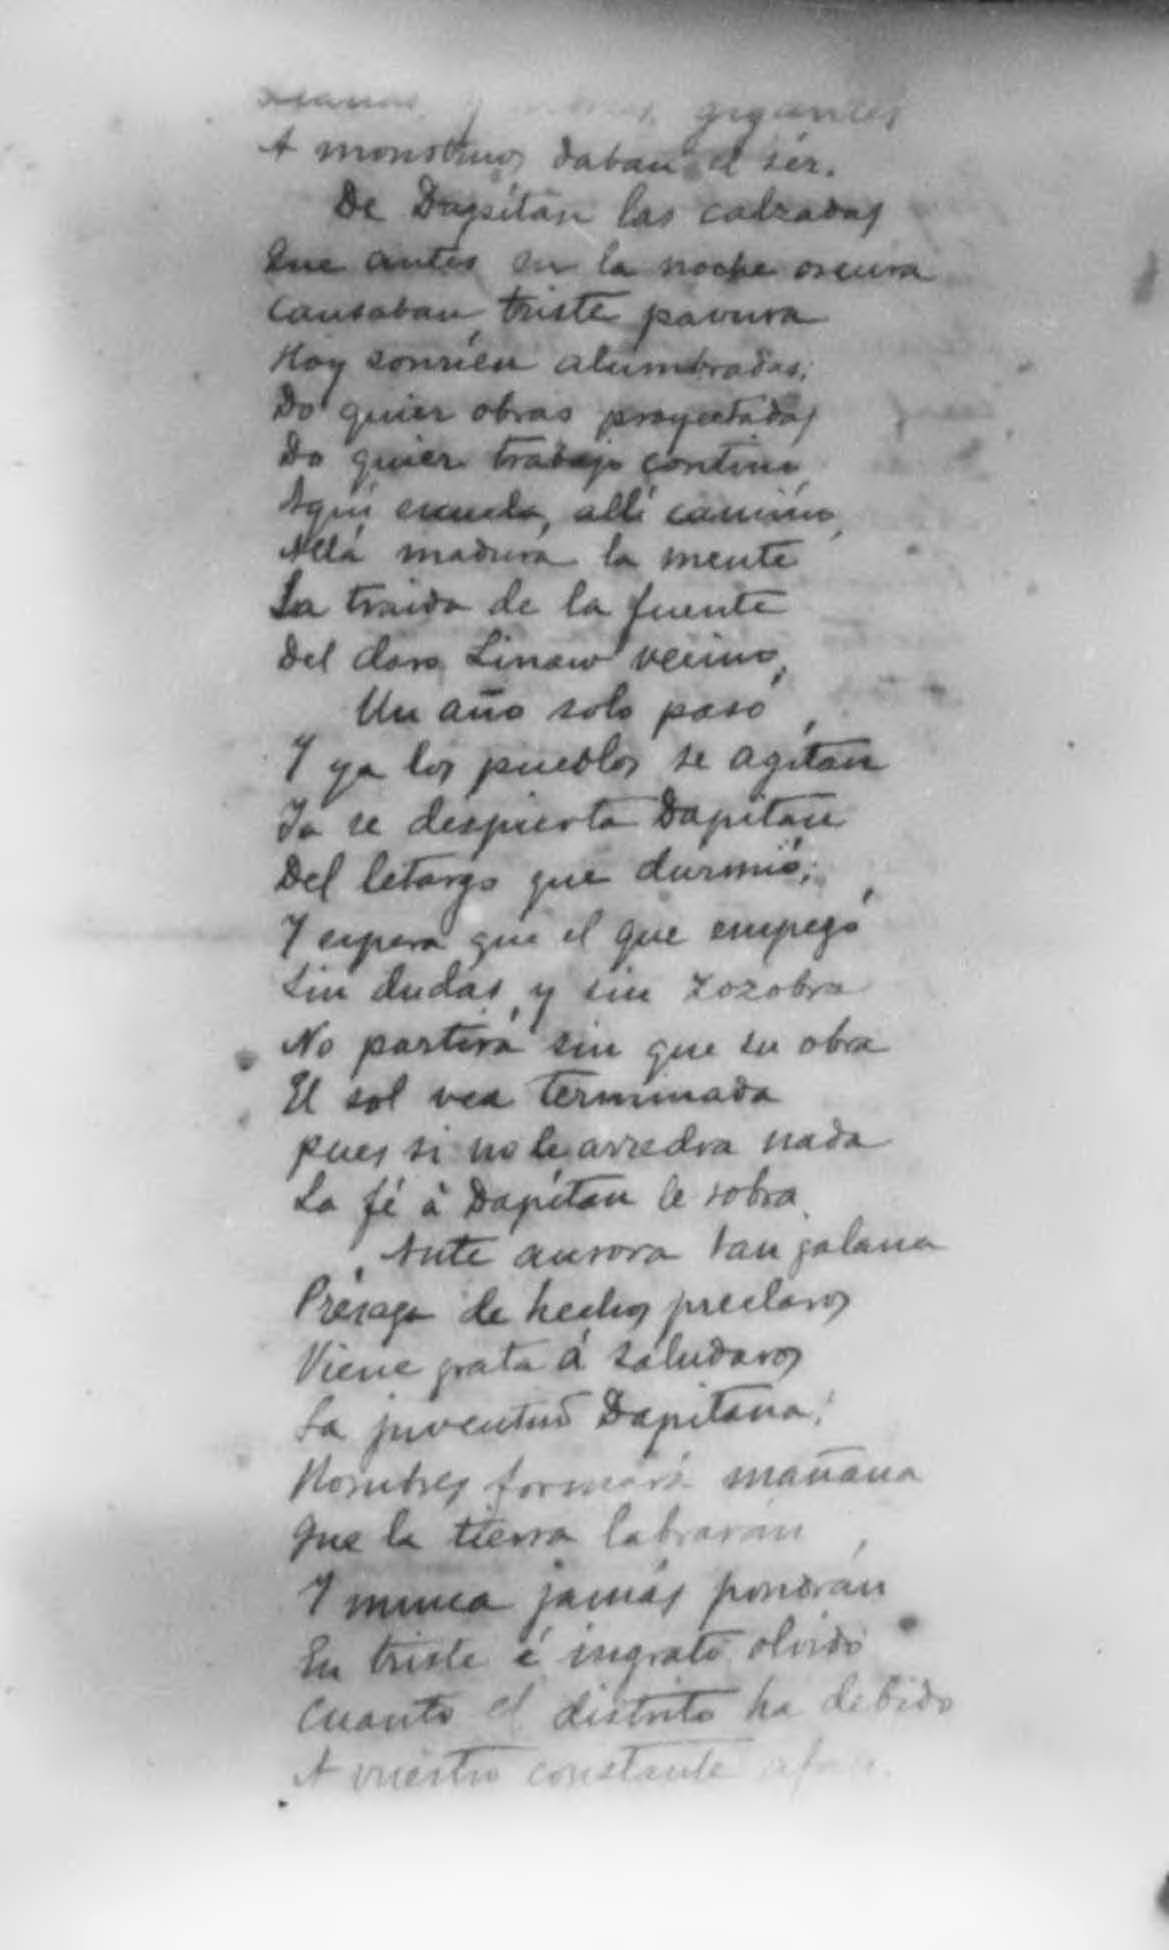 gigantes
A monstruos daban el sér.
De Dapitan las calzadas
Que antes en la noche oscura
Causaban triste pavura
Hoy sonrien alumbradas;
Do quier obras proyectadas
Do quier trabajo contino
Aquí escuela, allí camino,
Allá madura la mente
La traida de la fuente
Del claro Linaw vecino,
Un año solo pasó,
Y ya los pueblos se agitan
Ya se despierta Dapitan
Del letargo que durmió;
Y espera que el que empezó
Sin dudas y sin zozobra
No partirá sin que su obra
El sol vea terminada
pues si no le arredra nada
La fé á Dapitan le sobra.
Ante aurora tan galana
Présaga de hechos preclaros
Viene grata á saludaros
La juventud Dapitana;
Hombres formará mañana
Que la tierra labrarán,
Y nunca jamás pondrán
En triste é ingrato olvido
Cuanto el distrito ha debido
A vuestro constante afan.